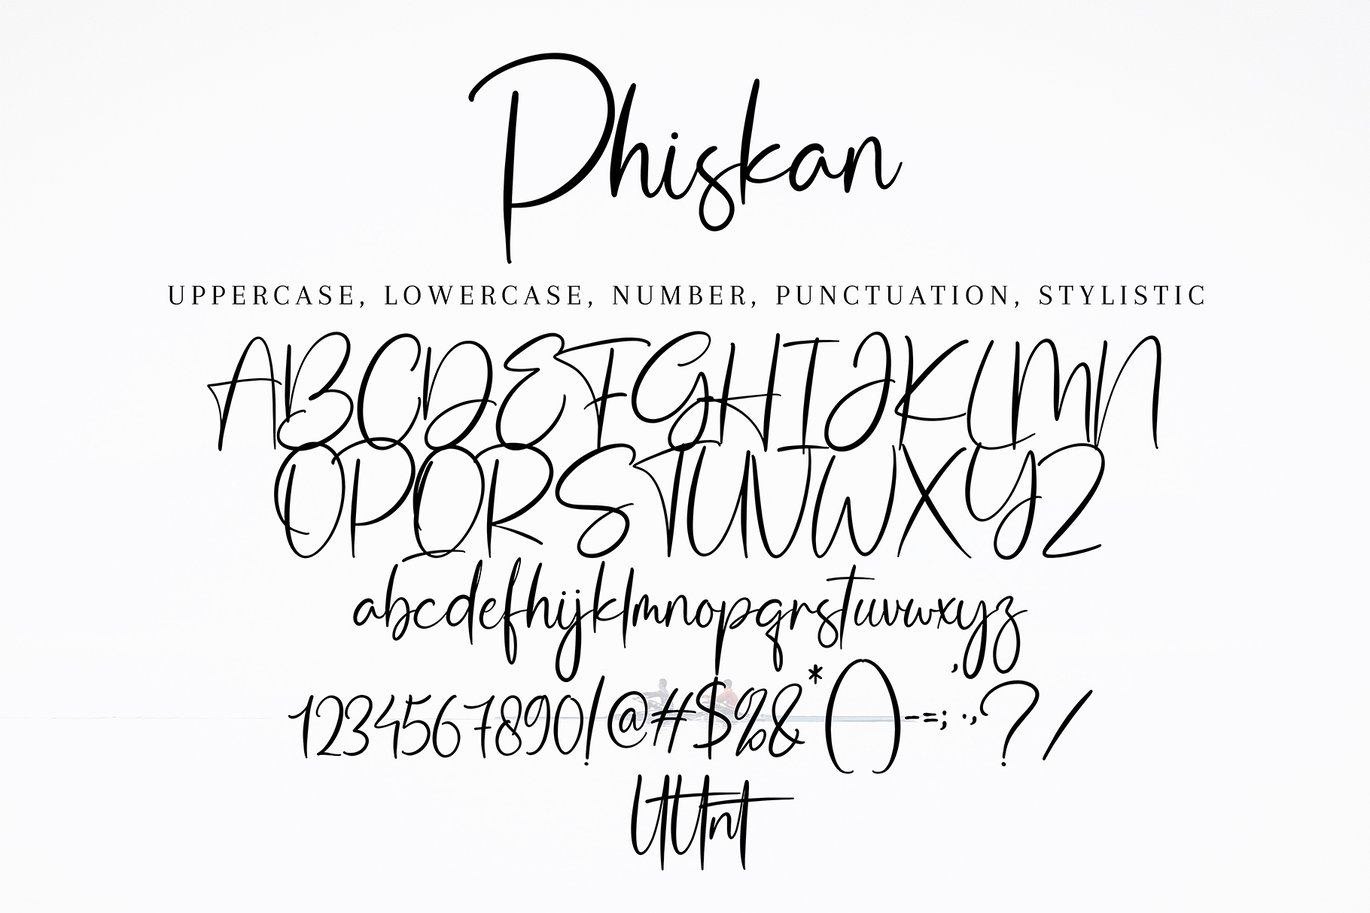 Phiskan
UPPERCASE, LOWERCASE, NUMBER, PUNCTUATION, STYLISTIC
ABCDEFGHIJKLMN
OPQRSTUVWXYZ
abcdefhijklmnopqrstuvwxyz
1234567890!@#$%&*()-=; ·,,?/